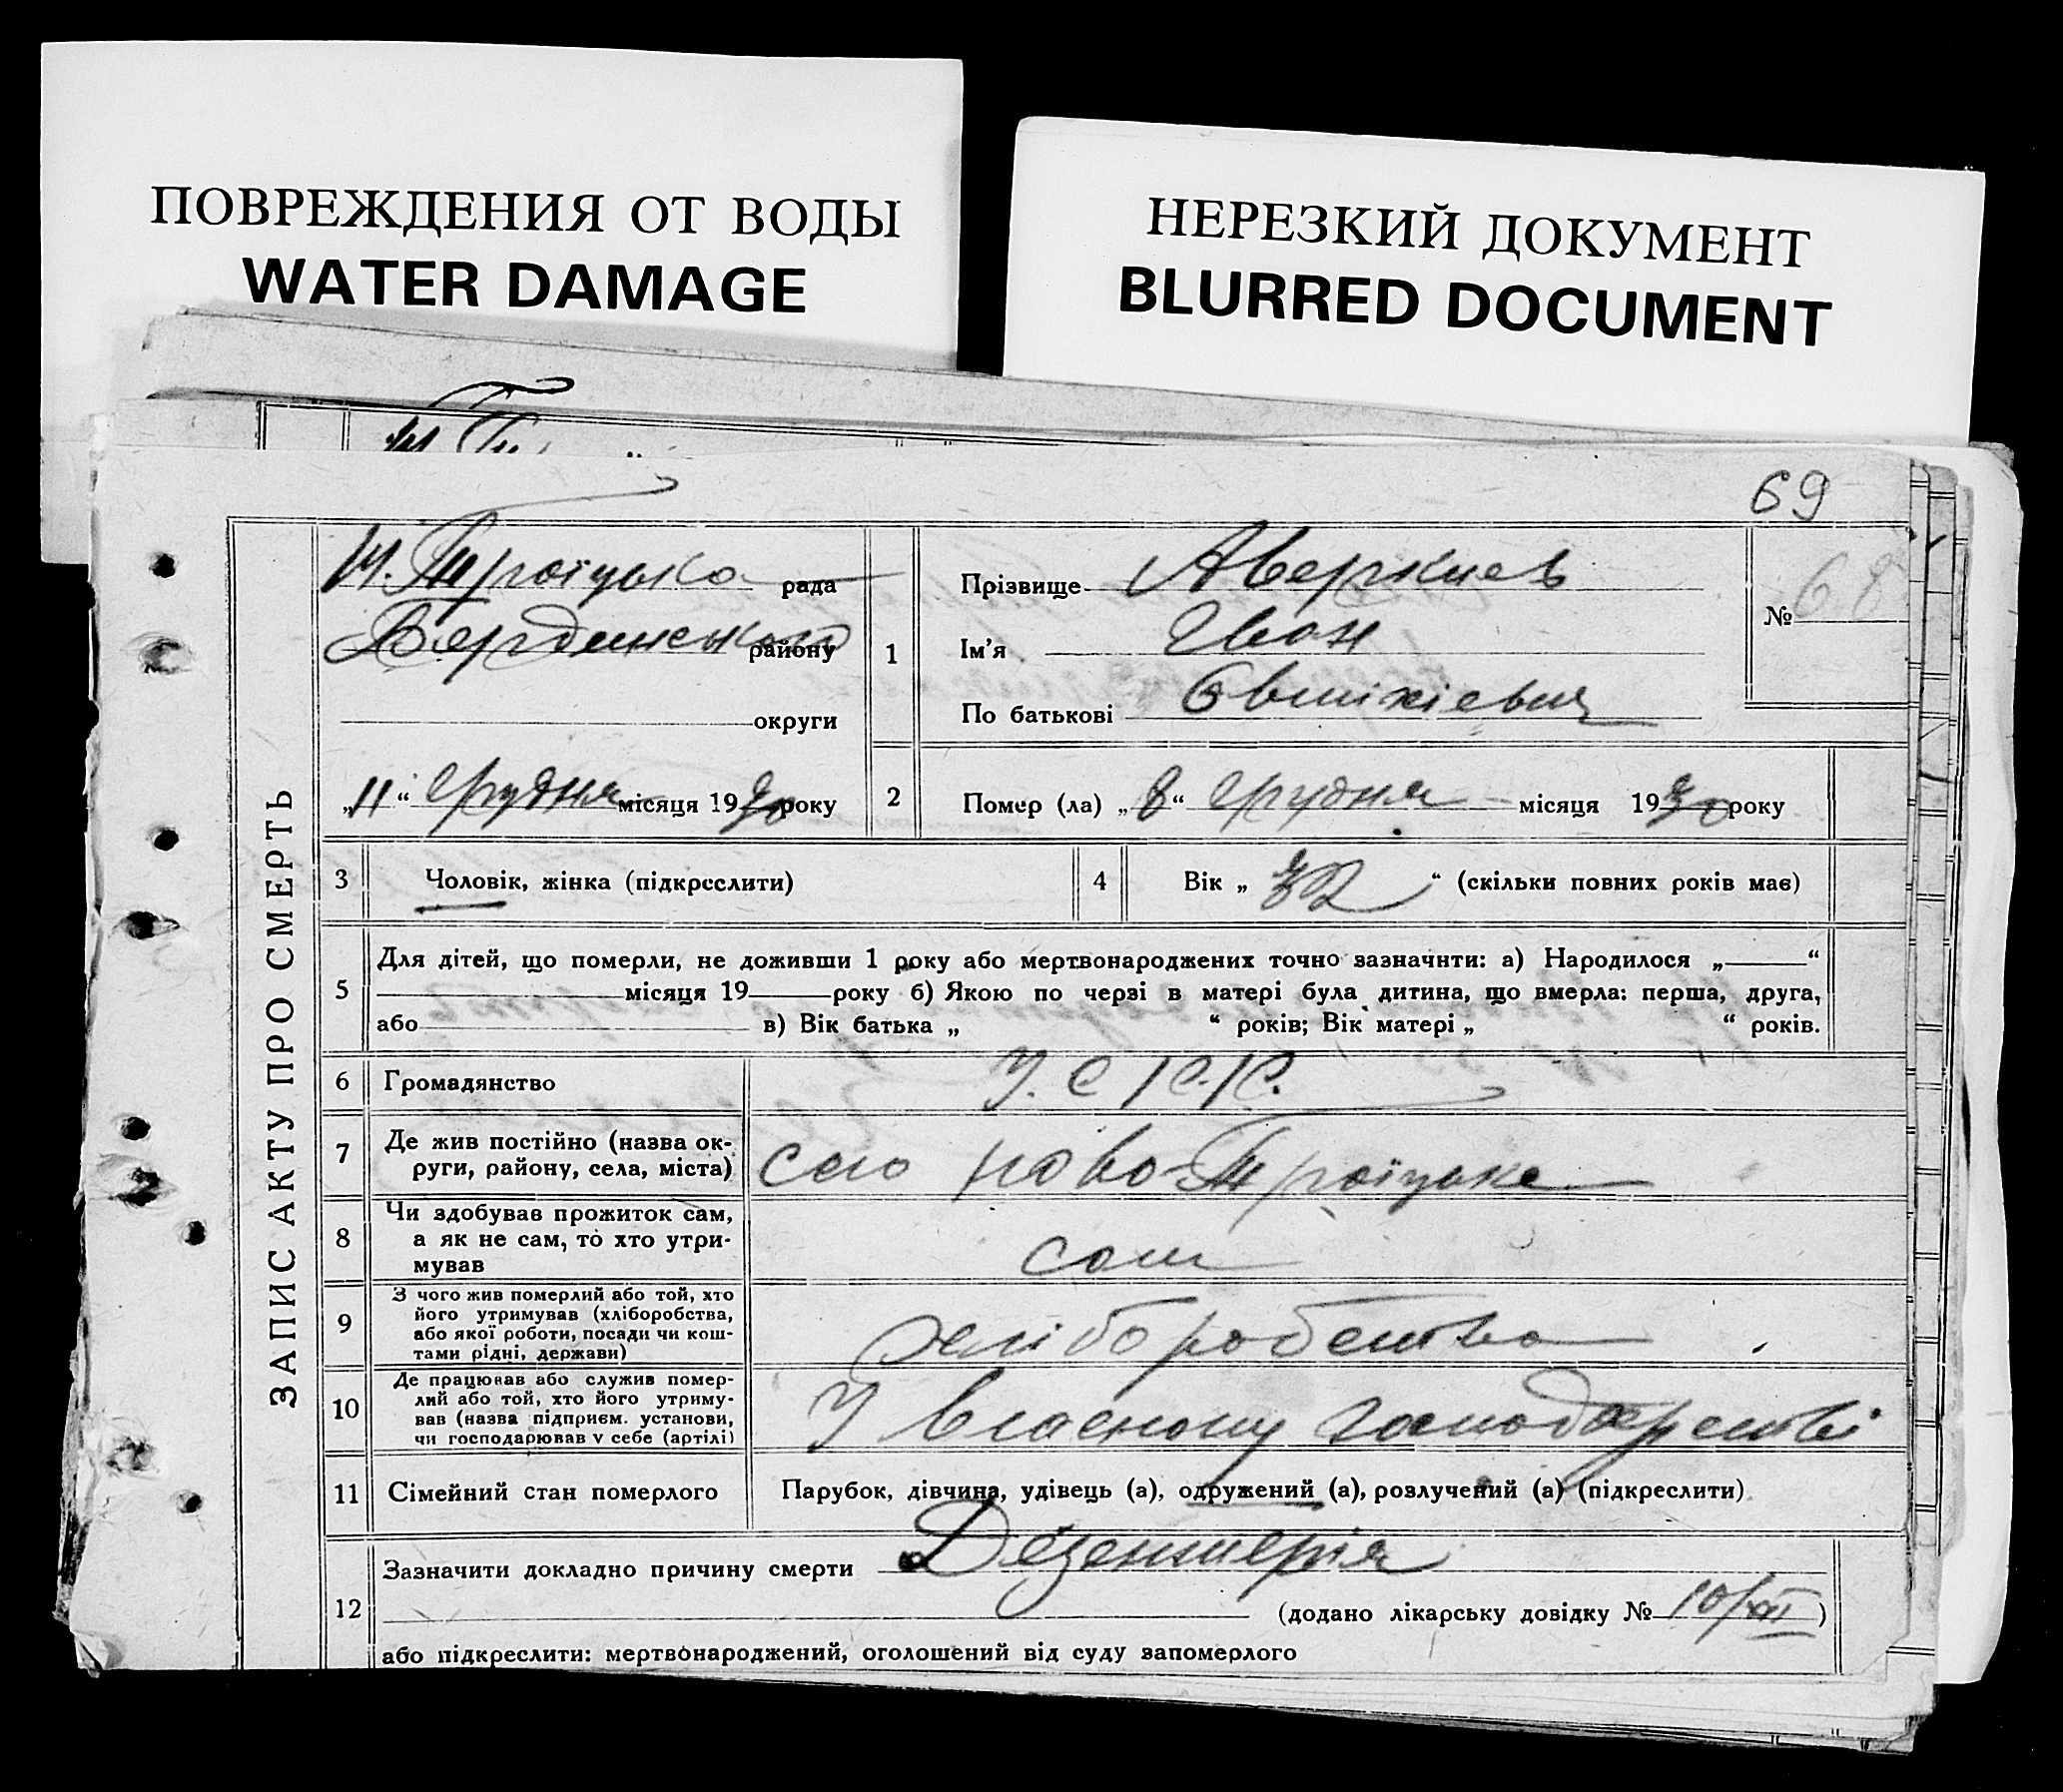 ПОВРЕЖДЕНИЯ ОТ ВОДЫ
WATER DAMAGE
НЕРЕЗКИЙ ДОКУМЕНТ
BLURRED DOCUMENT
69
ЗАПИС АКТУ ПРО СМЕРТЬ
Н. Троїцька рада
Бердянського району
округи
„11“ Грудня місяця 1930 року
1
Прізвище Аверкиев
Ім'я Іван
По батькові
№ 68
2
Помер (ла) „8“ Грудня місяця 1930 року
3 Чоловік, жінка (підкреслити)
4 Вік „32“ (скільки повних років має)
5
Для дітей, що померли, не доживши 1 року або мертвонароджених точно зазначити: а) Народилося „ “
місяця 19 року б) Якою по черзі в матері була дитина, що вмерла: перша, друга,
або в) Вік батька „ “ років; Вік матері „ “ років.
6 Громадянство У.С.Р.Р.
7 Де жив постійно (назва ок-
руги, району, села, міста)
село Ново-Троїцьке
8 Чи здобував прожиток сам,
а як не сам, то хто утри-
мував
сам
9 З чого жив померлий або той, хто
його утримував (хліборобства,
або якої роботи, посади чи кош-
тами рідні, держави)
хліборобства
10 Де працював або служив помер-
лий або той, хто його утриму-
вав (назва підприєм. установи,
чи господарював у себе (артілі)
У власному господарстві
11 Сімейний стан померлого
Парубок, дівчина, удівець (а), одружений (а), розлучений (а) (підкреслити)
12
Зазначити докладно причину смерти Дезентерія
(додано лікарську довідку № 10/XII)
або підкреслити: мертвонароджений, оголошений від суду запомерлого